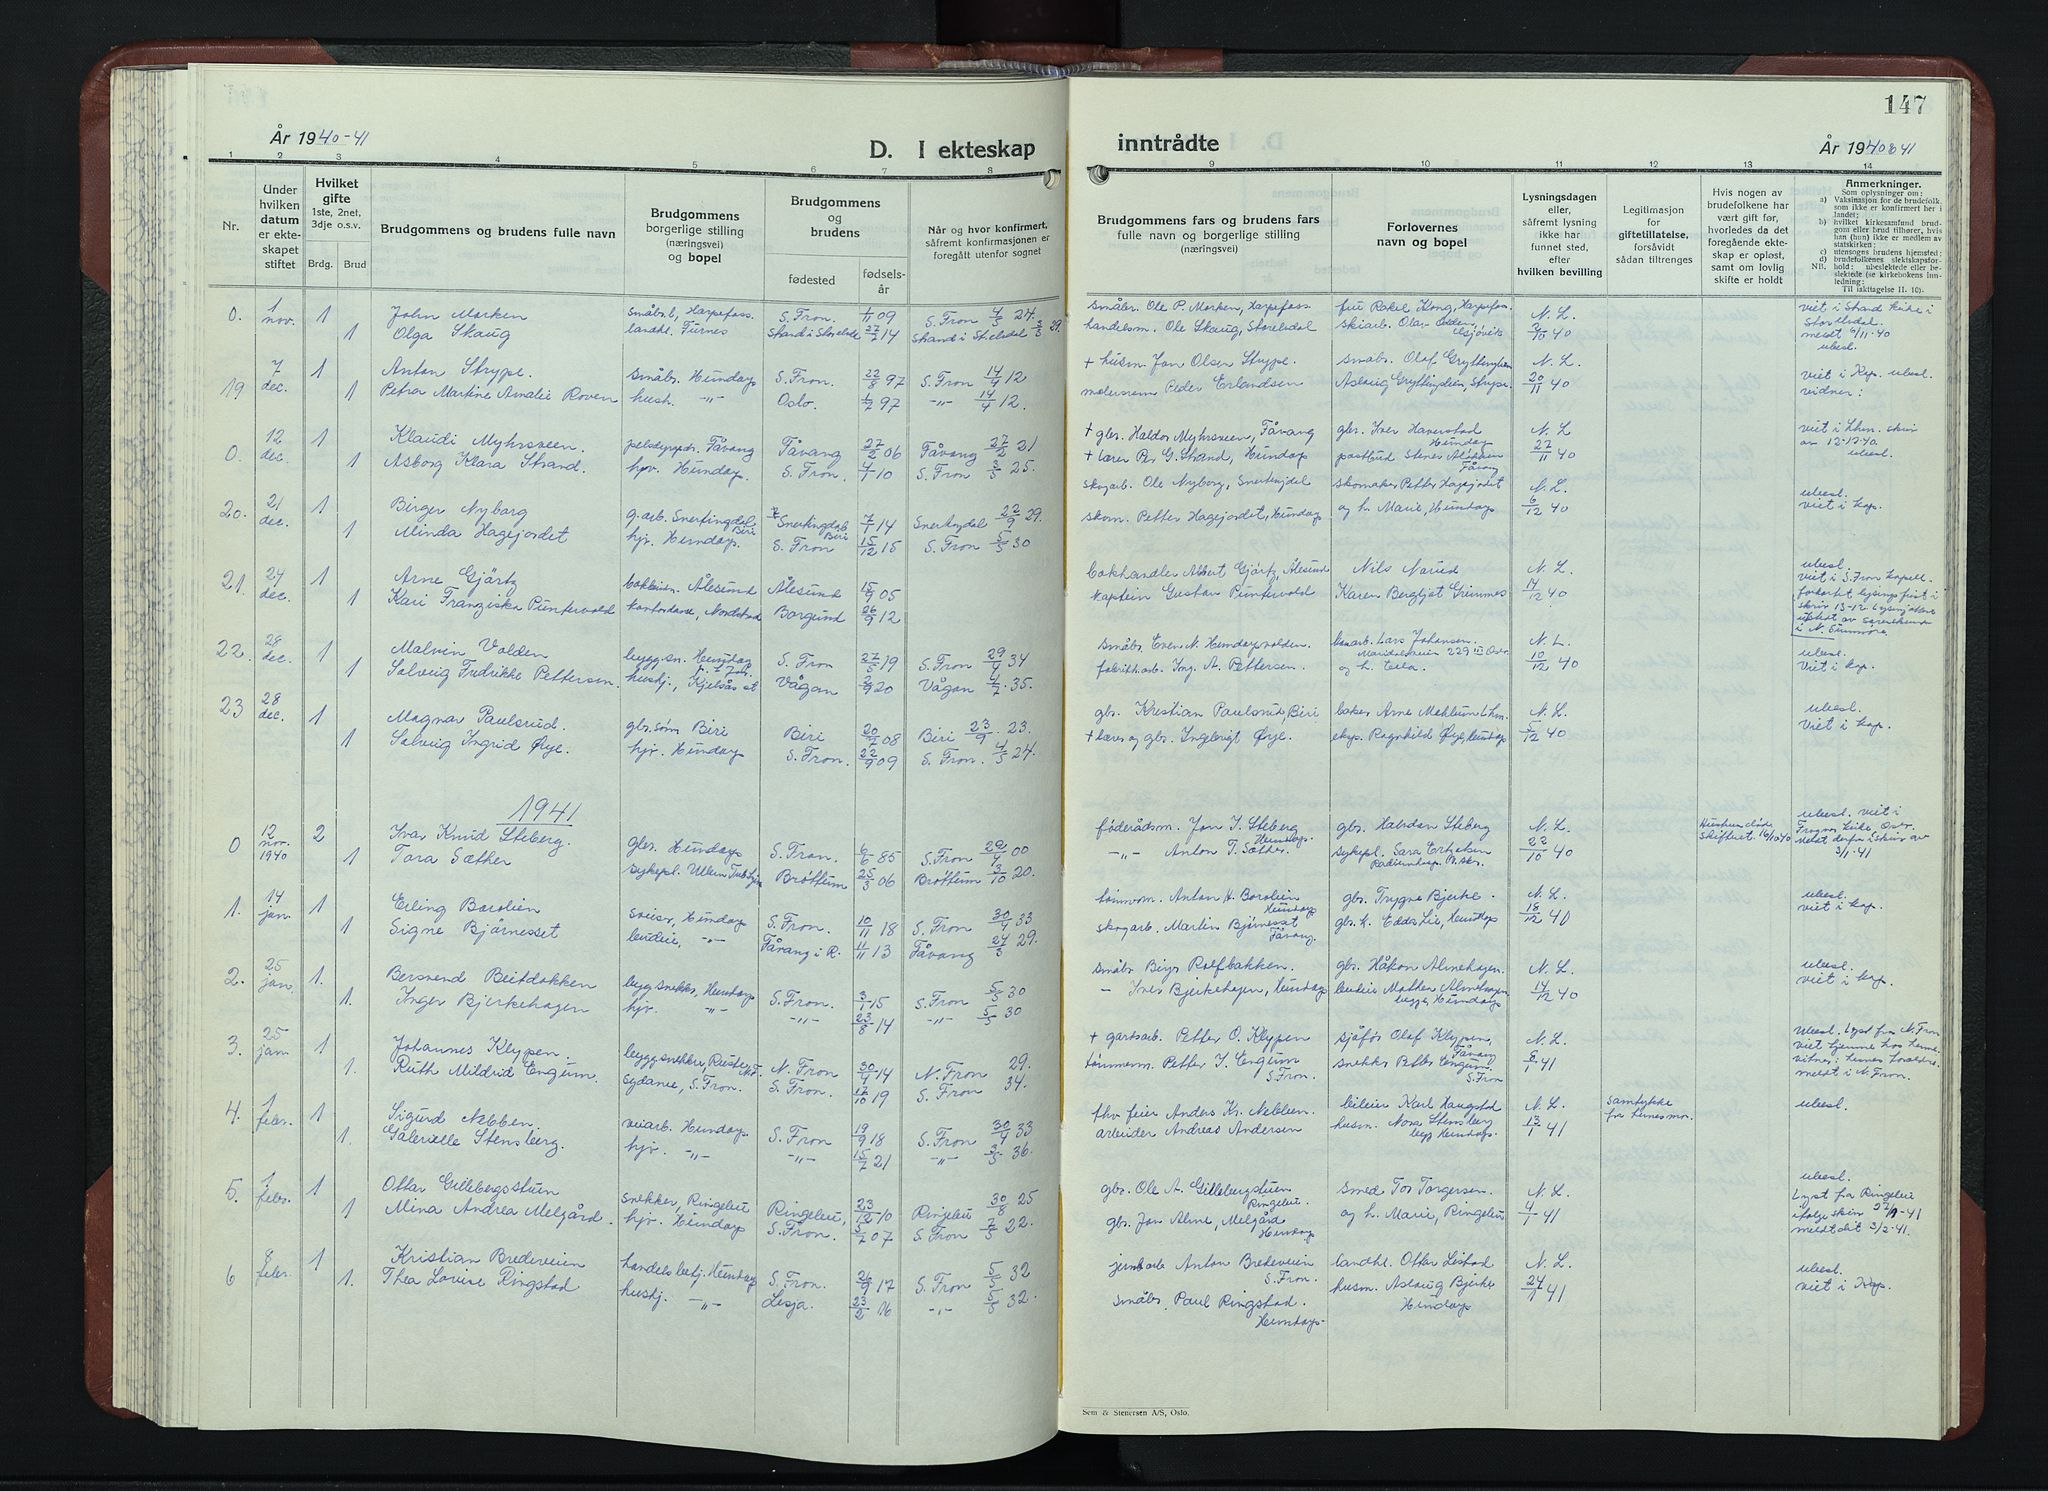 147
År 1940-41
D. I ekteskap
inntrådte
År 1940 & 41
1 2 3 4 5 6 7 8 9 10 11 12 13 14
Nr.
Under hvilken datum er ekteskapet stiftet
Hvilket gifte
1ste, 2net, 3dje o.s.v.
Brdg. Brud
Brudgommens og brudens fulle navn
Brudgommens borgerlige stilling (næringsvei) og bopel
Brudgommens og brudens
fødested
fødselsår
Når og hvor konfirmert, såfremt konfirmasjonen er foregått utenfor sognet
Brudgommens fars og brudens fars fulle navn og borgerlige stilling (næringsvei)
Forlovernes navn og bopel
Lysningsdagen eller, såfremt lysning ikke har funnet sted, efter hvilken bevilling
Legitimasjon for giftetillatelse, forsåvidt sådan tiltrenges
Hvis nogen av brudefolkene har vært gift før, hvorledes da det foregående ekteskap er opløst, samt om lovlig skifte er holdt
Anmerkninger.
Som oplysninger om:
a) Vaksinasjon for de brudefolk, som ikke er konfirmert her i landet;
b) hvilket kirkesamfund brudgom eller brud tilhører, hvis han (hun) ikke er medlem av statskirken;
c) utensogns brudens hjemsted;
d) brudefolkenes slektskapsforhold: ubeslektede eller beslektede (se kirkebokens innledning:
NB. Til iakttagelse II. 10).
0. 1 nov. 1 John Morken småbr., Harpefoss S. Fron 1/11 09 S. Fron 4/5 24. småbr. Ole P. Morken, Harpefoss fru Rakel Kong, Harpefoss N. L. viet i Strand kirke i
1 Olga Skaug landhl. Furnes Strand i Storelvdal 27/7 14 Strand i St.elvdal 3/3 29. handelsm. Ole Skaug, Storelvdal skiarb. Olav Odden, Gjøvik 3/10 40 Storelvdal. meldt 6/11-40 ubesl.
19 7 dec. 1 Anton Strype. småbr. Hundorp S. Fron. 22/8 97 S. Fron 14/4 12 + husm. Jon Olsen Strype. småbr. Olaf Gryttinglien N. L. viet i Kap. ubesl.
1 Petra Martine Amalie Roven hush. -"- Oslo. 1/7 97 -"- 14/4 12. malersvm Peder Erlandsen Aslaug Gryttinglien, Strype. 20/11 40 vidner:
0. 12 dec. 1 Klaudi Myhrsveen pelsdyrpdr. Fåvang Fåvang 27/2 06 Fåvang 27/2 21 + gbr. Haldor Myhrsveen, Fåvang gbr. Iver Haverstad Hundorp N. L. viet i Lhm. skriv
1 Asborg Klara Strand. hjv. Hundorp. S. Fron. 4/1 10 S. Fron 3/5 25. + lærer Per G. Strand, Hundorp postbud Fåvang 27/11 40 av 12-12-40. ubesl.
20. 21 dec. 1 Birger Nyborg g.arb. Snertingdal, Biri Snertingdal Biri 7/1 14 Snertingdal 22/9 29. skogarb. Ole Nyborg, Snertingdal skomaker Petter Hagejordet N. L. ubesl.
1 Minda Hagejordet hjv. Hundorp. S. Fron 15/12 15 S. Fron 5/5 30 skom. Petter Hagejordet, Hundorp og h. Marie, Hundorp 6/12 40 viet i kap.
21. 24 dec. 1 Arne Gjärtz Ålesund Ålesund 15/9 05 bokhandler Albert Gjärtz, Ålesund Nils Narud N. L. ubesl. viet i S. Fron kapell.
1 Kari Franziska Puntervold kontordame, Nordstrand Borgund 26/9 12 kaptein Gustav Puntervold Karen Bergljot Grimnes 14/12 40 forkortet lysingsfrist i skriv 13-12. i N. Sunnmøre
22. 28 dec. 1 Malvin Volden byggsn. Hundorp S. Fron 27/5 19 S. Fron 29/4 34 småbr. Even N. Hundorpvolden Lars Johansen. Maridalsveien 229 III Oslo N. L. ubesl.
1 Solveig Fredrikke Pettersen. hushj., Kjelsås st Vågan 2/9 20 Vågan 4/7 35. fabrikkarb. Ing. A. Pettersen. og h. 10/12 40 viet i kap.
23 28 dec. 1 Magnar Paulsrud. gbr.søn Biri Biri 20/7 08 Biri 23/9 23. gb. Kristian Paulsrud, Biri baker Arne Mehlum Lhm. N. L. ubesl.
1 Solveig Ingrid Øye. hjv. Hundorp S. Fron. 22/9 09 S. Fron. 4/5 24. + lærer og gbr. Ingbrigt Øye. eksp. Ragnhild Øye, Hundorp 5/12 40 viet i kap.
1941
0 12 nov. 1940 2 Ivar Knud Steberg. gbr. Hundorp S. Fron. 6/6 85 S. Fron 22/4 00 føderådsm. Jon I. Steberg Hundorp. gbr. Halvdan Steberg N. L. Hustruen døde skiftet 16/10 40 ubesl. viet i
1 Tora Sæther sykepl. Ullern Brøttum 25/3 06 Brøttum 3/10 20. -"- Anton T. Sæther. sykepl. Sara 22/10 40 Frogner kirke, Oslo. meldt derfra i skriv av 3/1-41
1. 14 jan. 1 Erling Barolien sveiser, Hundorp S. Fron. 10/11 18 S. Fron. 30/4 33 tømrerm. Anton H. Barolien Hundorp gbr. Trygve Bjerke. N. L. ubesl.
1 Signe Bjørnesset budeie, -"- Fåvang i R. 11/11 13 Fåvang 24/3 29. skogarb. Martin Bjørnesset Fåvang. gbr. h. Edda Lie, Hundorp 18/12 40 viet i kap.
2. 25 jan. 1. Bersvend Beitdokken byggsnekker, Hundorp S. Fron. 3/1 15 S. Fron 5/5 30 småbr. Birger Rolfbakken. gbr. Håkon Almehagen. N. L. ubesl.
1. Inger Bjerkehagen hjv. -"- -"- 23/8 14 -"- 5/5 30 - Iver Bjerkehagen, Hundorp budeie Mathea Almehagen begge Hundorp 14/12 40 viet i kap.
3. 25 jan. 1 Johannes Klypen. byggsnekker Rusten N.F. N. Fron 30/4 14 N. Fron 29. + gartsarb. Petter O. Klypen sjåfør Olaf Klypen, Fåvang N. L. ubesl. Lyst fra N. Fron
1. Ruth Mildrid Engum. sydame, S. Fron. S. Fron. 17/10 19 S. Fron 34. tømrerm. Petter I. Engum S. Fron. snekker Petter Engum. S. Fron 8/1 41 viet hjemme hos henne. vitner: hennes foreldre. meldt i N. Fron.
4. 1 febr. 1 Sigurd Nebben. veiarb. Hundorp S. Fron 19/9 18 S. Fron 30/4 33 fhv feier Anders Kr. Nebben. bileier Karl Haugstad N. L. samtykke fra hennes mor. ubesl.
1. Gabrielle Stensberg. hjv. -"- -"- 15/7 21 -"- 3/5 36. arbeider Andreas Andersen husm. Nora Stensberg begge Hundorp. 13/1 41
5. 1 febr. 1 Ottar Gillebergstuen snekker, Ringebu Ringebu, 23/12 10 Ringebu 30/8 25 gbr. Ole A. Gillebergstuen Ringebu. smed Tor Torgersen. N. L. ubesl. Lyst fra Ringebu
1 Mina Andrea Melgård. hjv. Hundorp S. Fron. 5/7 07 S. Fron 7/5 22. gbr. Jon Alme, Melgård Hundorp og h. Marie, Ringebu 4/1 41 ifølge skriv 27/1-41 meldt dit 3/2-41.
6 8 febr. 1 Kristian Bredeveien handelsbetj. Hundorp S. Fron. 26/9 17 S. Fron 5/5 32 jernbarb Anton Bredeveien S. Fron. landhl. Ottar Listad N. L. ubesl.
1. Thea Lovise Ringstad hushj. -"- Lesja. 23/2 16 -"- 5/5 32. småbr. Paul Ringstad. Hundorp- husm. Aslaug Bjerke Hundorp 24/1 41 viet i Kap.
Sem & Stenersen A/S, Oslo.